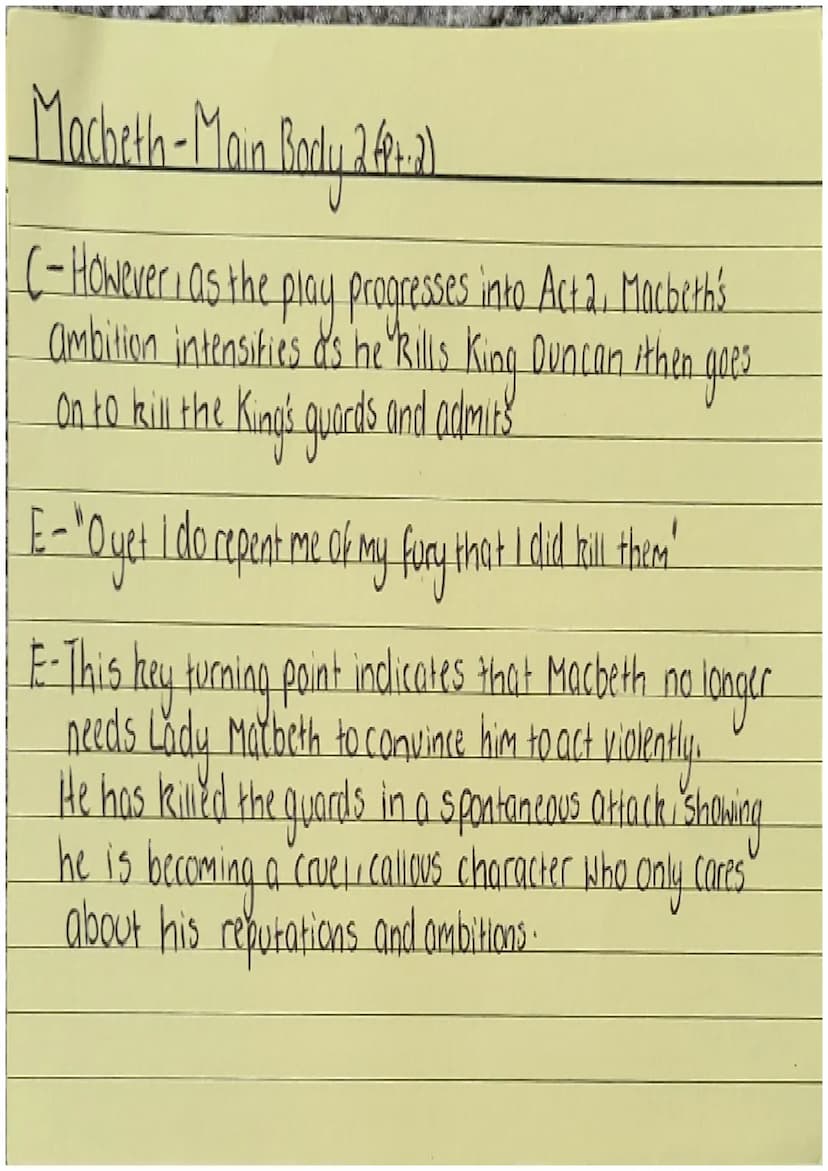 Macbeth - Main Body 2 (Pt.2)
C - However, as the play progresses into Act 2, Macbeth's
ambition intensifies as he kills King Duncan, then goes
on to kill the King's guards and admits
E - "O yet I do repent me of my fury that I did kill them'
E - This key turning point indicates that Macbeth no longer
needs Lady Macbeth to convince him to act violently.
He has killed the guards in a spontaneous attack, showing
he is becoming a cruel, callous character who only cares
about his reputations and ambitions.